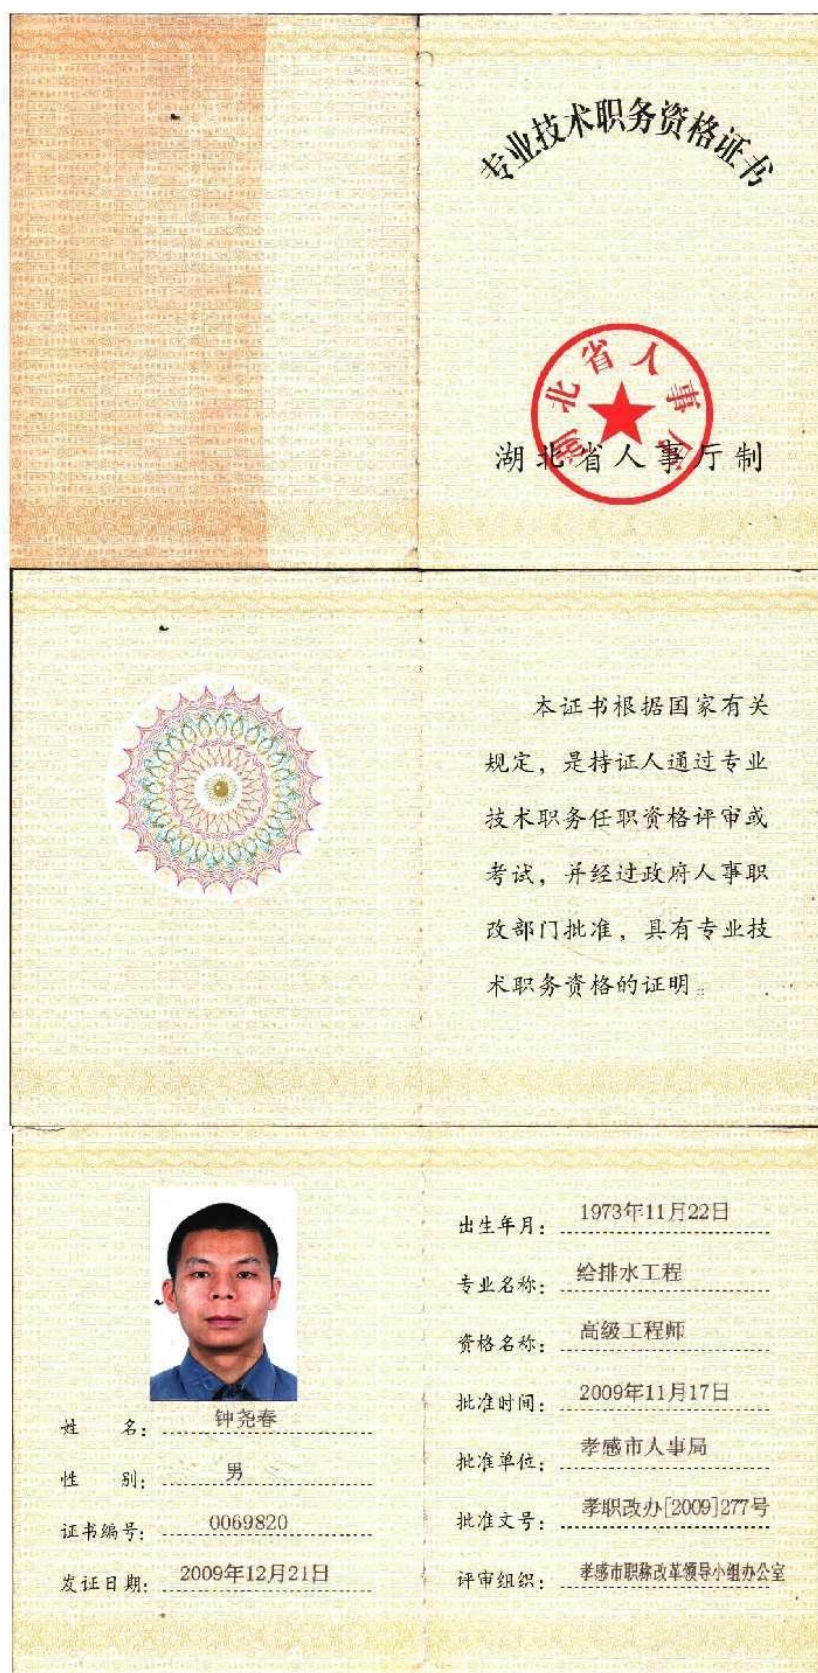 专业技术职务资格证书
湖北省人事厅
湖北省人事厅制
本证书根据国家有关
规定，是持证人通过专业
技术职务任职资格评审或
考试，并经过政府人事职
改部门批准，具有专业技
术职务资格的证明。
姓 名：钟尧春
性 别：男
证书编号：0069820
发证日期：2009年12月21日
出生年月：1973年11月22日
专业名称：给排水工程
资格名称：高级工程师
批准时间：2009年11月17日
批准单位：孝感市人事局
批准文号：孝职改办[2009]277号
评审组织：孝感市职称改革领导小组办公室